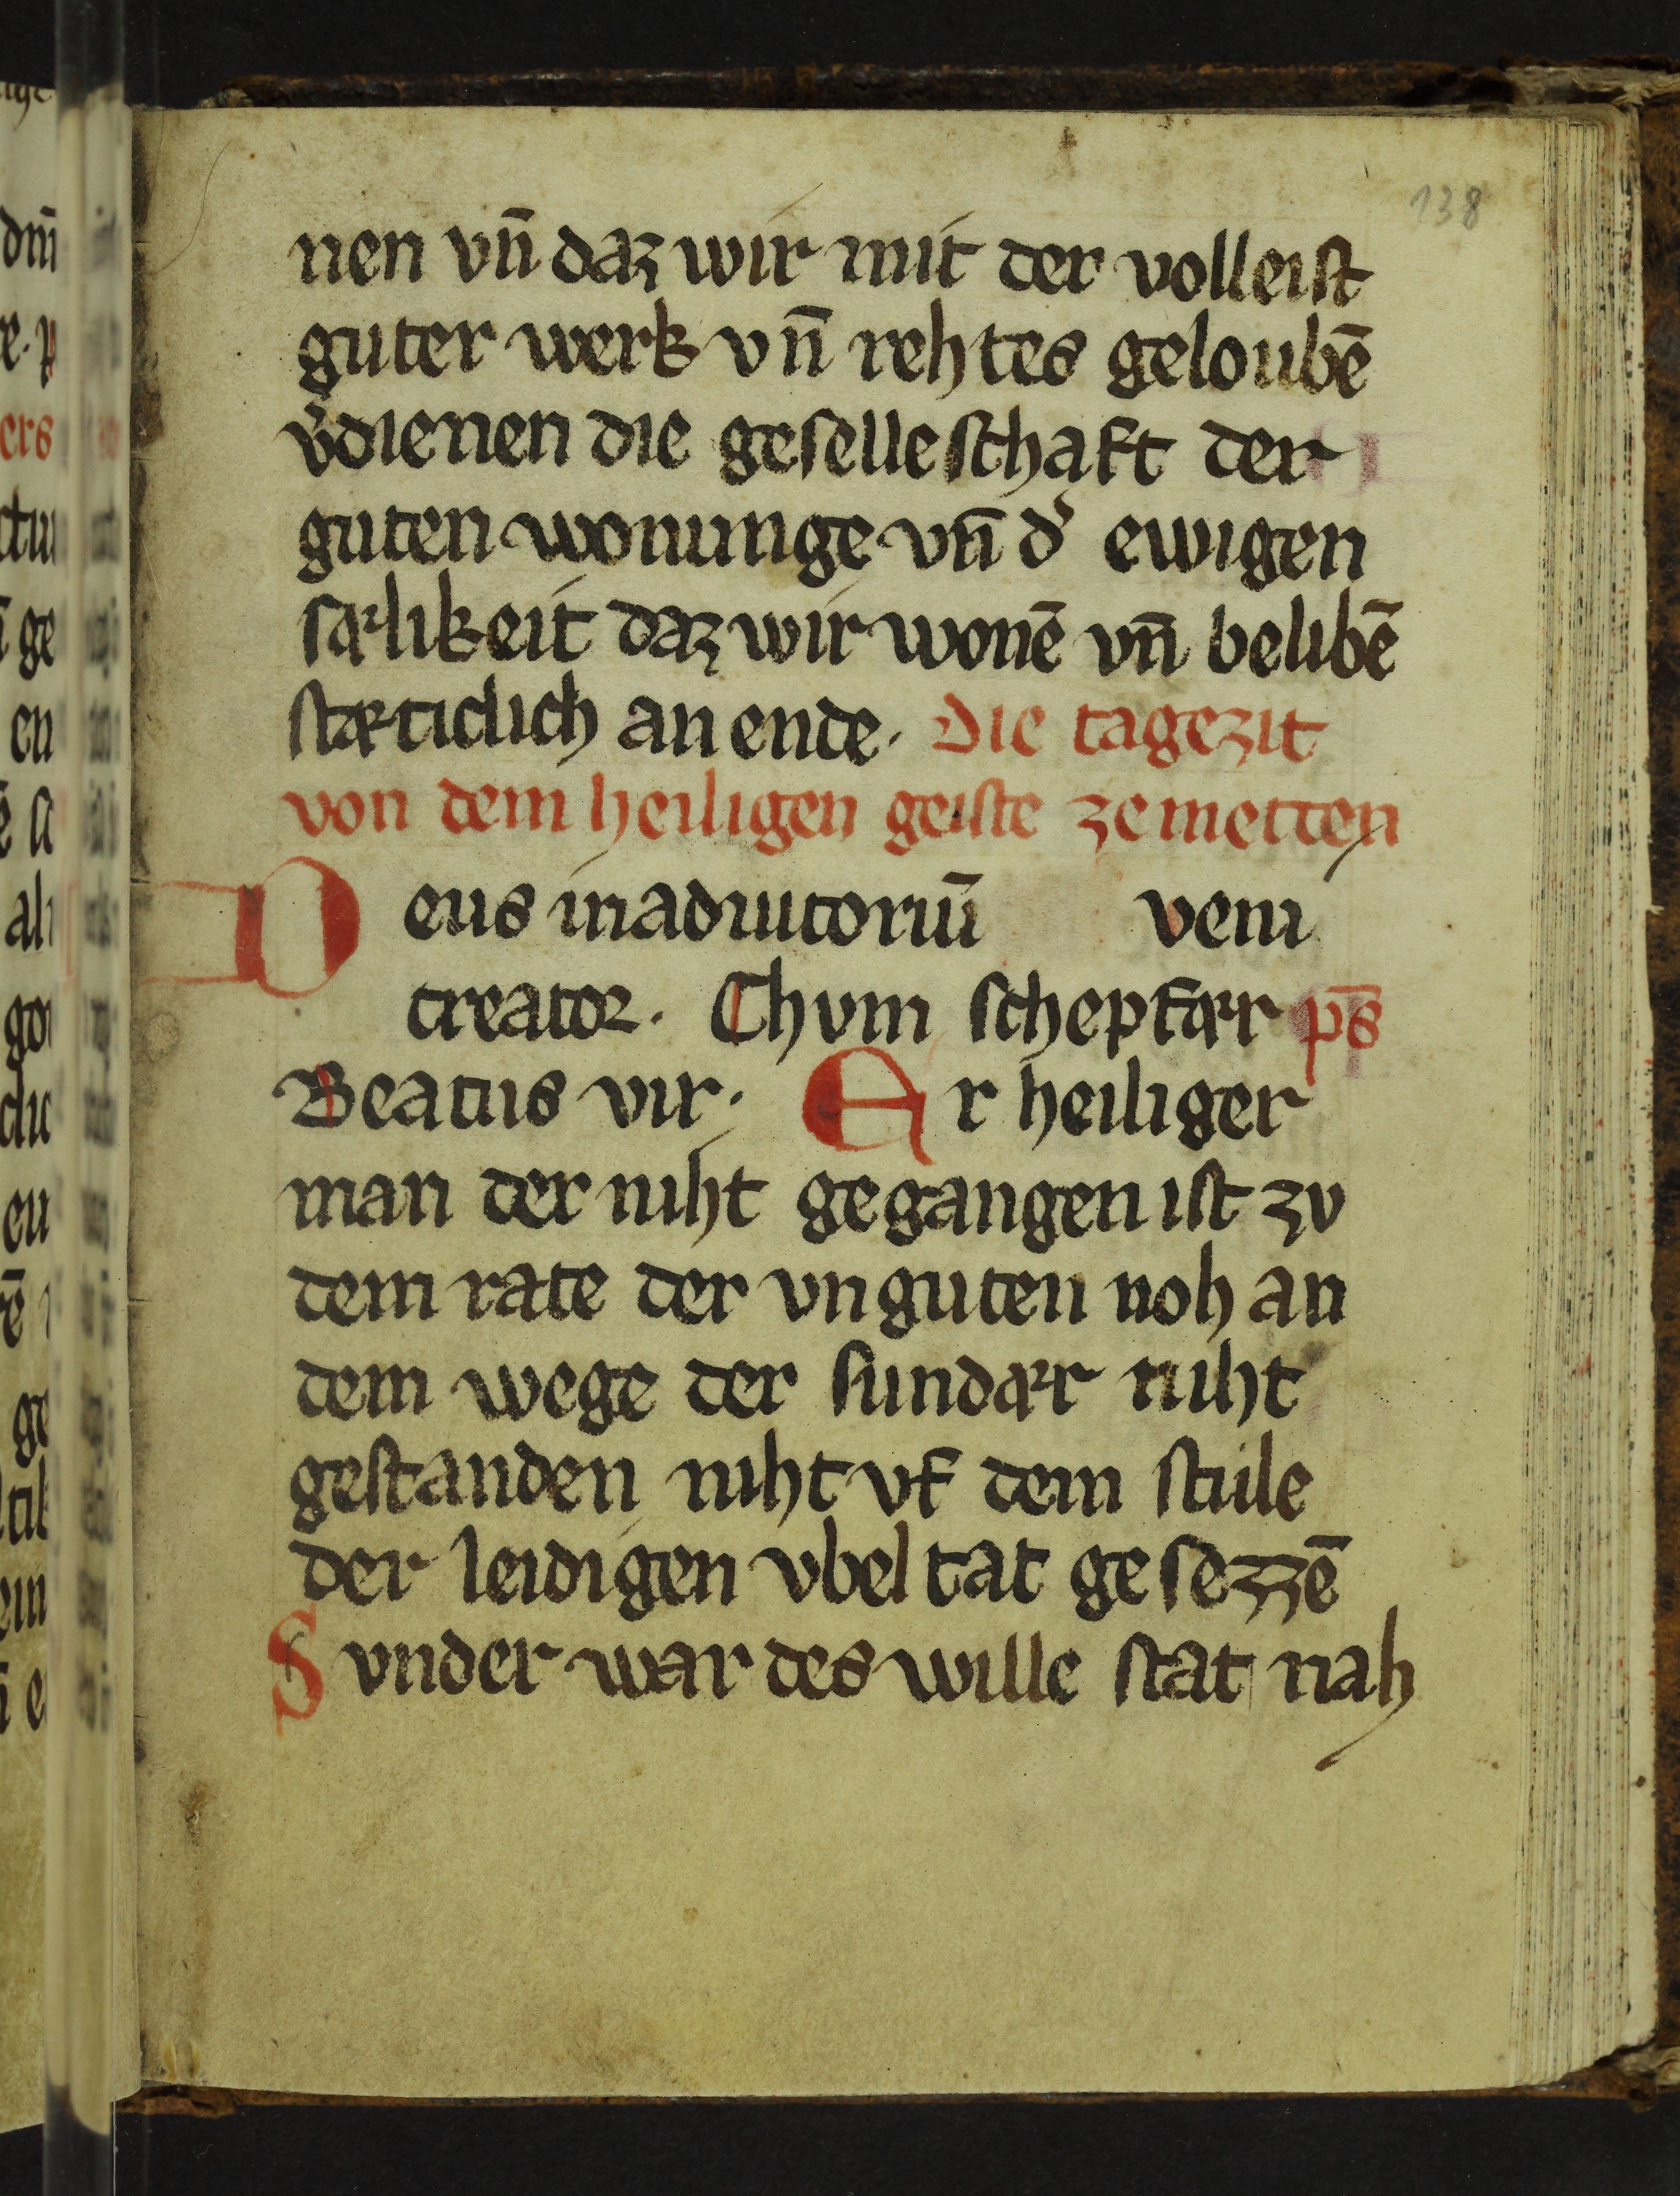 138
nen vn̄ daz wir mit der volleist
guter werk vn̄ rehtes geloubē
v̓dienen die geselleschaft der
guten wonunge vn̄ d̓ ewigen
sælikeit daz wir wonē vn̄ belibē
stæticlich an ende. Die tagezit
von dem heiligen geiste ze metten
Deus in adiutoriū veni
creator. Chvm schepfær ps̄
Beatus vir. Er heiliger
man der niht gegangen ist zv
dem rate der vnguten noh an
dem wege der sundær niht
gestanden niht vf dem stule
der leidigen vbeltat gesezzē
Svnder war des wille stat nah